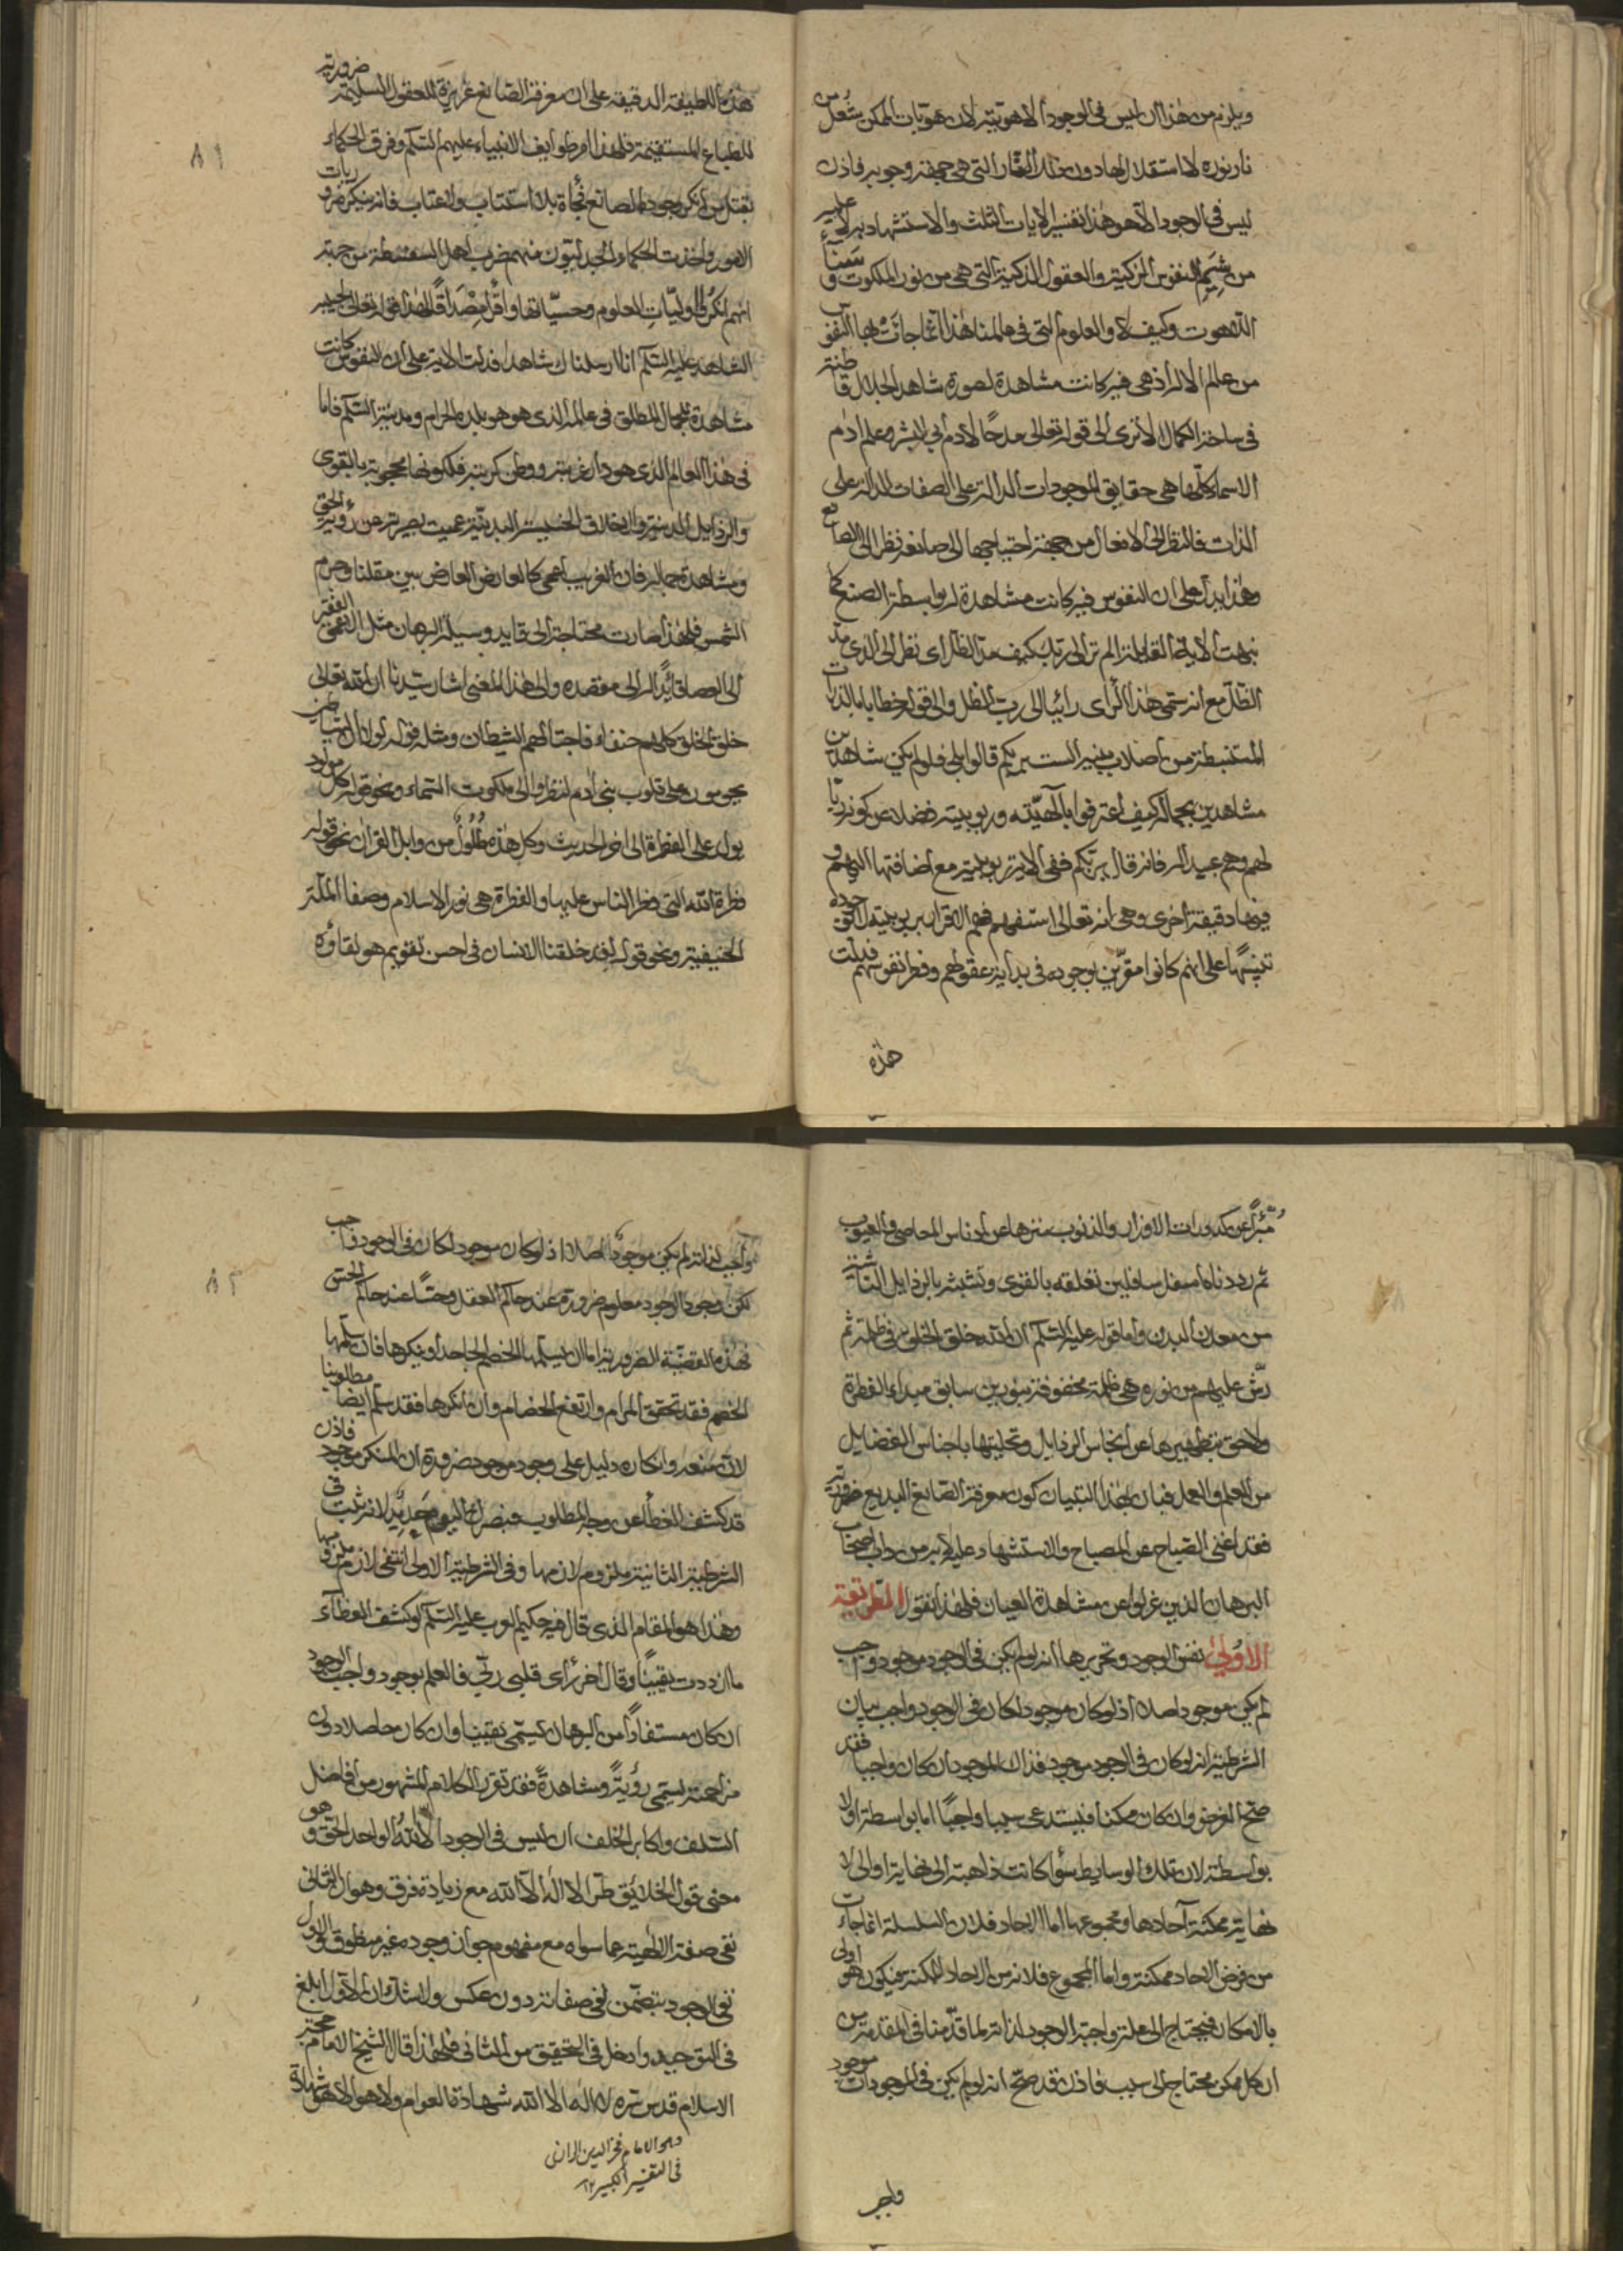 ويلزم من هذا ان ليس فى الوجود الا هويته لان هويات الممكن شعل من
نار نوره لا استقلال لها دون تلك النار التى هى جهة وجوبه فاذن
ليس فى الوجود الا هو هذا تفسير الايات الثلث والاستشهاد به لا عليه
من شيم النفوس الزكية والعقول الذكية التى هى من نور الملكوت و سناء
اللاهوت وكيف لا والعلوم التى فى عالمنا هذا انما جاءت بها النفوس
من عالم الاله اذ هى فيه كانت مشاهدة لصورة شاهد الجلال قاطنة
فى ساحة الكمال الا ترى الى قوله تعالى مدحًا لادم ابى البشر وعلم ادم
الاسماء كلها هى حقايق الموجودات الدالة على الصفات الدالة على
الذات فالنظر الى الافعال من جهة احتياجها الى صانعه نظر الى الصانع
وهذا يدل على ان النفوس فيه كانت مشاهدة له بواسطة الصنع كما
نبهت الاية القايلة الم تر الى ربك كيف مد الظل اى نظر الى الذى مد
الظل مع انه سمى هذا الرأى رائيا الى رب الظل والى قوله خطابا بالذرات
المستنبطة من اصلاب بنيه الست بربكم قالوا بلى فلو لم يكن شاهدين
مشاهدين بجماله كيف اعترفوا بآلهيته وربوبيته فضلا عن كونه ربا
لهم وهم عبيد له فانه قال بربكم ففى الاية ربوبية مع اضافتها اليهم و
فيها دقيقة اخرى وهى انه تعالى استفهم فهم الاقرار بربوبيته لا بوجوده
تنبيهًا على انهم كانوا مقرين بوجوده فى بداية عقولهم وفطر نفوسهم فدلت
هذه
هذه اللطيفة الدقيقة على ان معرفة الصانع غريزة للعقول السليمة ضرورية
للطباع المستقيمة فلهذا امر طوايف الانبياء عليهم السلم وفرق الحكماء
بقتل من انكر وجود الصانع فجأة بلا استتاب والاعتاب فانه ينكر ضروريات
الامور واخذت الحكماء والجدليون منهم ضرب اهل السفسطة من جهة
انهم انكروا اوليّات العلوم وحسيّاتها واقرأ مصداقًا لهذا قوله تعالى لحبيبه
الشاهد عليه السلم انا ارسلناك شاهدا فدلت الاية على ان النفوس كانت
مشاهدة للجمال المطلق فى عالمه الذى هو هو بلده الحرام ومدينة السلم فاما
فى هذا العالم الذى هو دار غربته ووطن كربته فلكونها محجوبة بالقوى
والرذايل الدنية والاخلاق الخسيسة البدنيّة عميت بصيرته عن رؤية الحق
ومشاهدة جماله فان الغريب اعمى كالعارض العارض بين مقلنا وجرم
الشمس فلهذا صارت محتاجة الى قايد وسيلة البرهان مثل الاعمى الفقير
الى العصا قائدًا له الى مقصده والى هذا المعنى اشار سيدنا ان الله تعالى
خلق الخلق كلهم حنفاء فاجتالهم الشيطان ومثله قوله لولا ان الشياطين
يحومون على قلوب بنى آدم لنظروا الى ملكوت السماء ونحو قوله كل مولود
يولد على الفطرة الى اخر الحديث وكل هذه طلول من وابل القرآن نحو قوله
فطرة الله التى فطر الناس عليها والفطرة هى نور الاسلام وصفاء الملة
الحنيفية ونحو قوله لقد خلقنا الانسان فى احسن تقويم هو لقاؤه
٨١
مبرّأ عن كدورات الاوزار والذنوب منزها عن ادناس المعاصى والعيوب
ثم رددناه اسفل سافلين تعلقه بالقوى وتشبثه بالرذايل الناشئة
من معدن البدن واما قوله عليه السلم ان الله خلق الخلق فى ظلمة ثم
رشّ عليهم من نوره هى ظلمة محفوفة بنورين سابق مبداء الفطرة
ولاحق بتطهيرها عن انجاس الرذايل وتحليتها باجناس الفضايل
من العلم والعمل فبان بهذا التبيان كون معرفة الصانع البديع ضرورية
فقد اغنى الصباح عن المصباح والاستشهاد عليه لا به من داب اصحاب
البرهان الذين عزلوا عن مشاهدة العيان فلهذا نقول الطريقة
الاولى نفس الوجود وتحريرها انه لو لم يكن فى الوجود موجود واجب
لم يكن موجود اصلا اذ لو كان موجود لكان فى الوجود واجب بيان
الشرطية انه لو كان فى الوجود موجود فذاك الموجود ان كان واجبا فقد
صح الغرض وان كان ممكنا فيستدعى سببا واجبًا اما بواسطة او لا
بواسطة لان تلك الوسايط سواء كانت ذاهبة الى نهاية او الى لا
نهاية ممكنة آحادها ومجموعها اما الاحاد فلان السلسلة انما جاءت
من فرض الاحاد ممكنة واما المجموع فلانه من الاحاد الممكنة فيكون هو اولى
بالامكان فيحتاج الى علة واجبة الوجود لذاته لما قدّمنا فى المقدمة من
ان كل ممكن محتاج الى سبب فاذن قد صحّ انه لو لم يكن فى الموجودات موجود
واجب
واجب لذاته لم يكن موجود اصلا اذ لو كان موجود لكان فى الوجود واجب
لكن وجود الوجود معلوم ضرورة عند حاكم العقل وحسًا عند حاكم الحس
فهذه القضيّة الضرورية اما ان يسلمها الخصم الجاحد او ينكرها فان سلمها
الخصم فقد تحقق المرام وارتفع الخصام وان انكرها فقد سلم ايضا مطلوبنا
لان منعه وانكاره دليل على وجود موجود ضرورة ان المنكر موجود فاذن
قد كشف الغطاء عن وجه المطلوب فبصرك اليوم حديدٌ لانه ثبت فى
الشرطية الثانية ملزوم لازمها وفى الشرطية الاولى انتفى لازم ملزومها
وهذا هو المقام الذى قال فيه حكيم العرب عليه السلم لو كشف الغطاء
ما ازددت يقينًا وقال اخر رأى قلبى ربّى فالعلم بوجود واجب الوجود
ان كان مستفادًا من البرهان يسمّى يقينا وان كان حاصلا دون
مزاحمته يسمى رؤيةً ومشاهدةً فقد تقرر الكلام المشهور من افاضل
السلف واكابر الخلف ان ليس فى الوجود الا الله الواحد الحق وهو
معنى قول الخلائق طرا لا اله الا الله مع زيادة فرق وهو ان الثانى
نفى صفة الالهية عما سواه مع مفهوم جواز وجوده غير منطوق والاول
نفى الوجود بتضمّن نفى صفاته دون عكس ولا شك ان الاول ابلغ
فى التوحيد وادخل فى التحقيق من الثانى فلهذا قال الشيخ الامام حجة
الاسلام قدس سره لا اله الا الله شهادة العوام ولا هو الا هو شهادة
وهو الامام فخر الدين الرازى
فى التفسير الكبير ١٢
٨٢